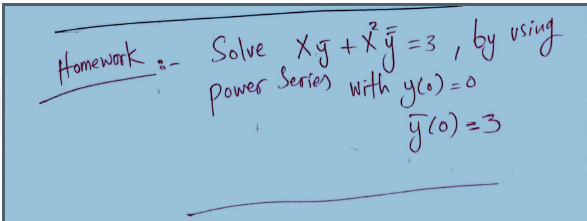 Homework :- Solve xȳ + x²ȳ̄ = 3 , by using
power Series with y(0) = 0
ȳ(0) = 3